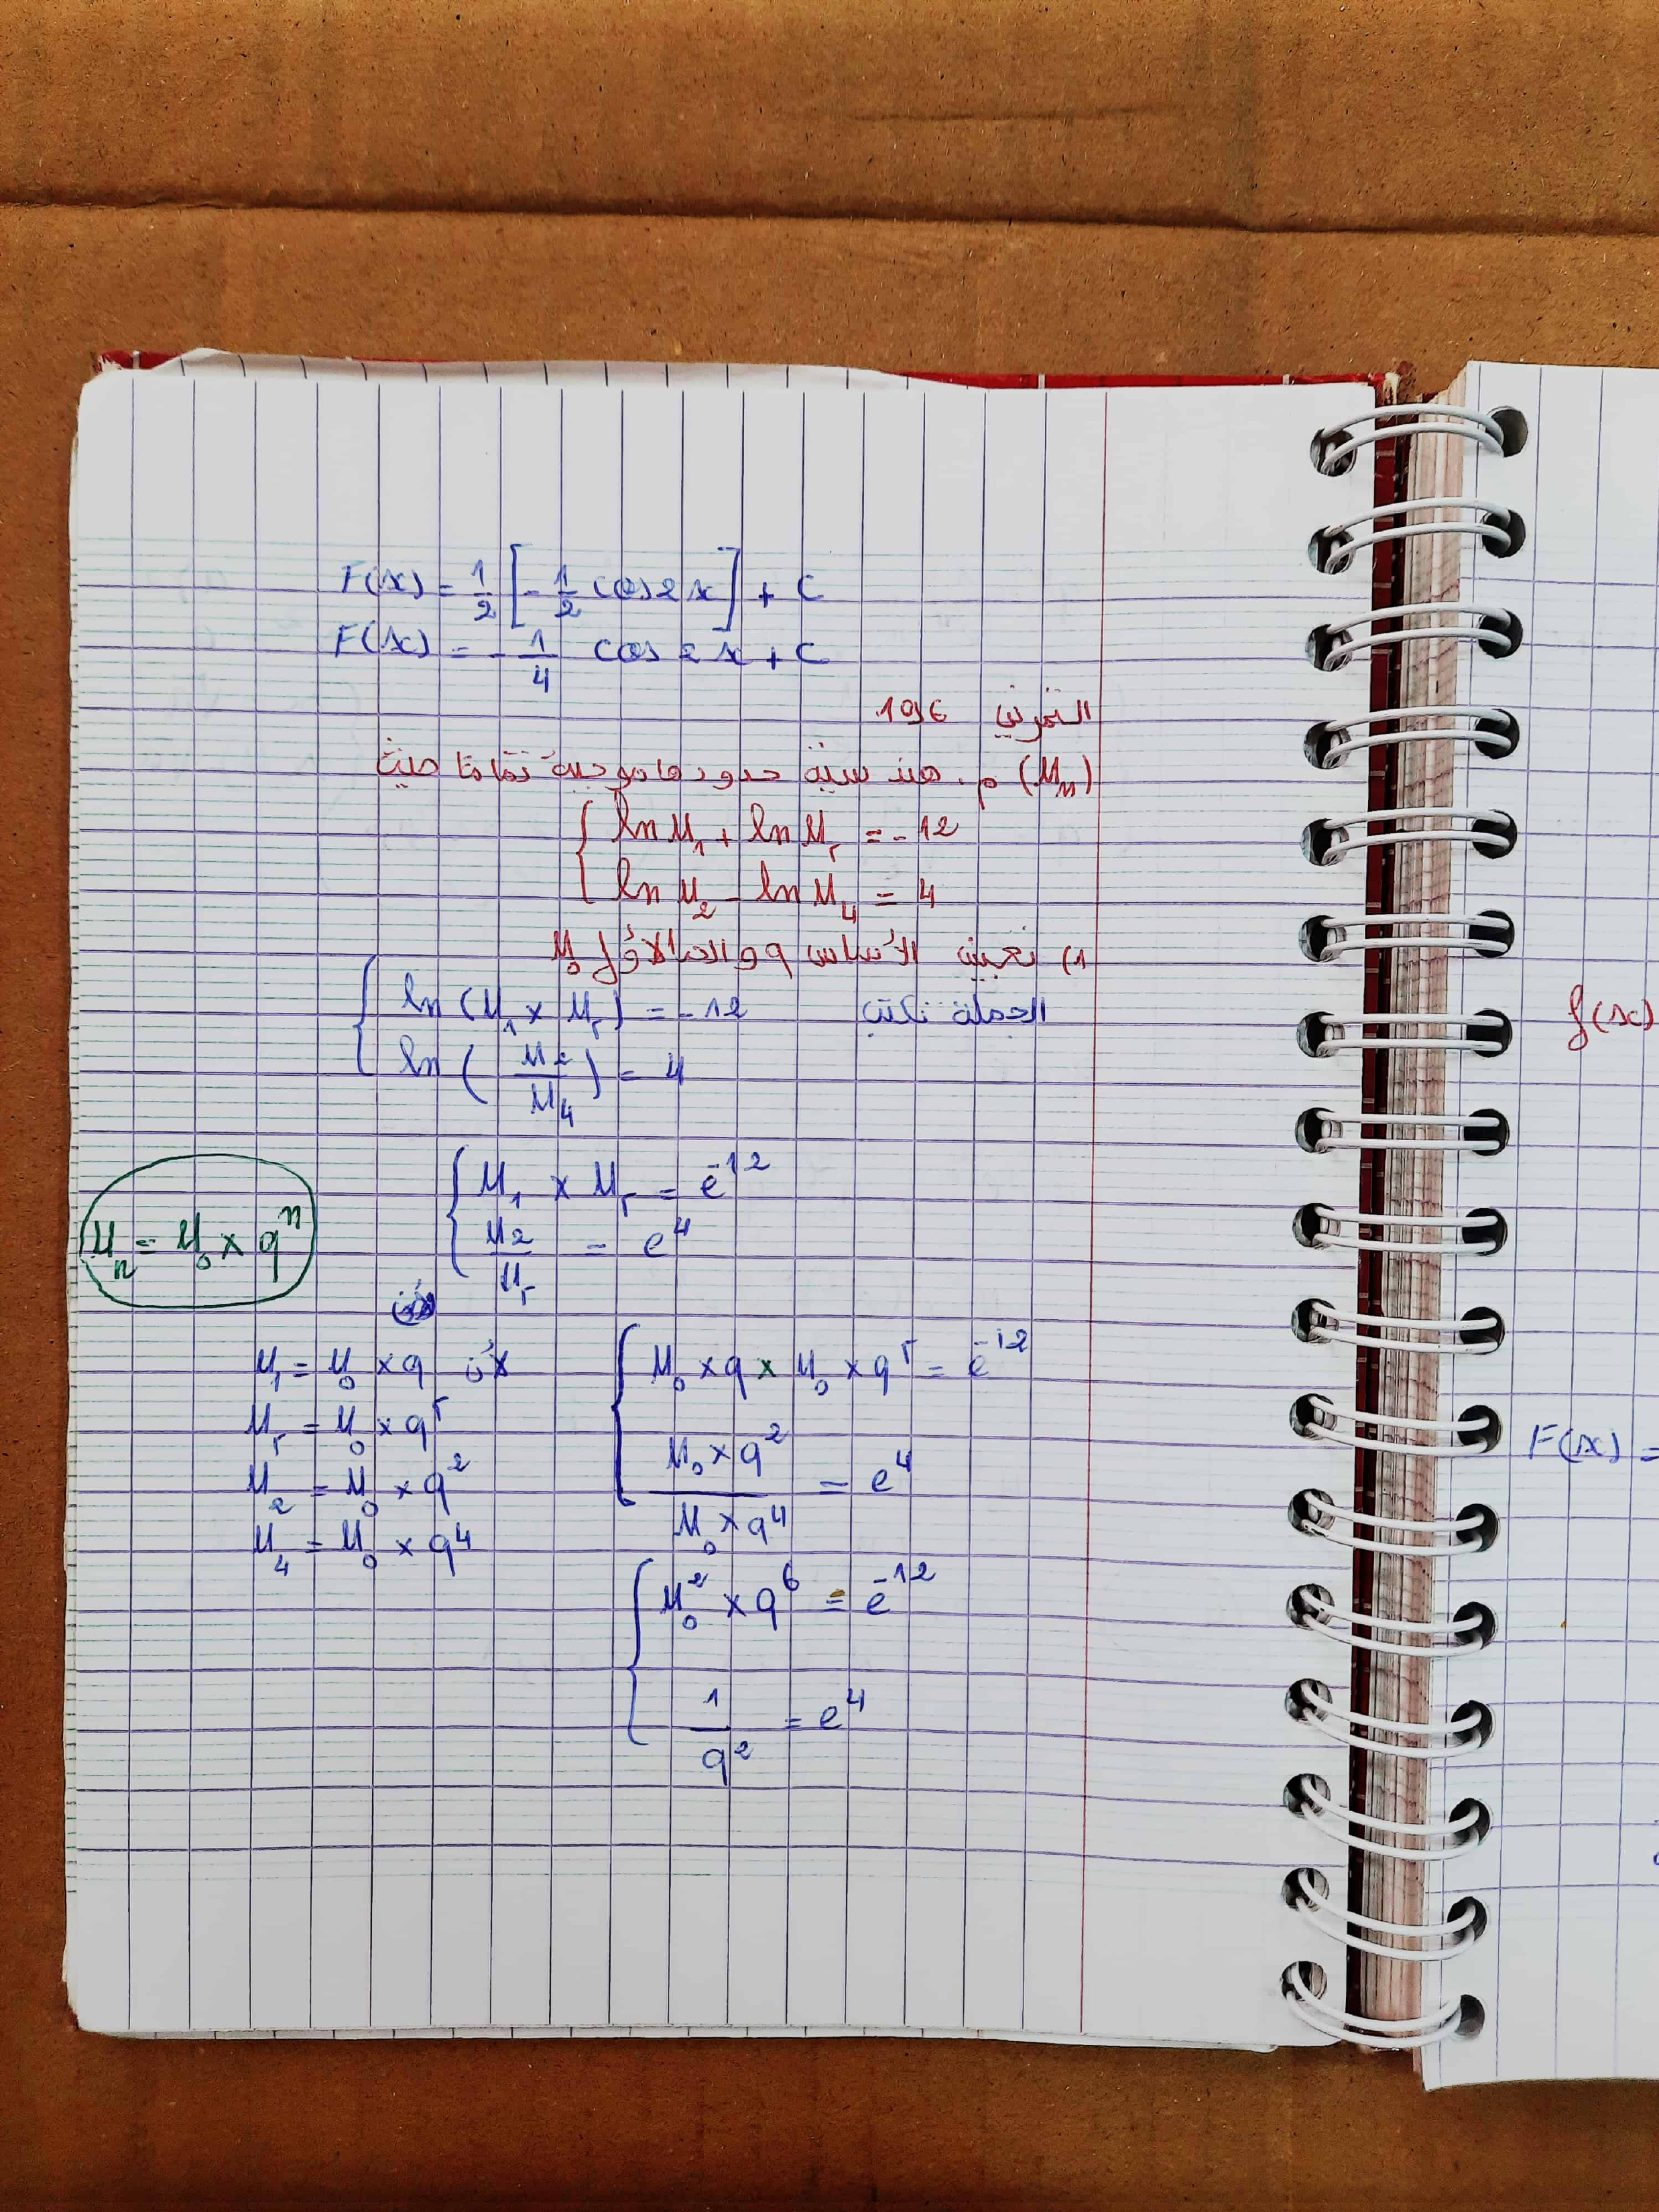 F(x) = 1/2 [ - 1/2 cos 2x ] + C
F(x) = - 1/4 cos 2x + C
التمرين 196
(Un) م. هندسية حدودها موجبة تماما حيث
{ ln U1 + ln U5 = -12
{ ln U2 - ln U4 = 4
1) تعيين الأساس q و الحد الأول U0
الجملة تكتب { ln (U1 x U5) = -12
{ ln ( U2 / U4 ) = 4
{ U1 x U5 = e^-12
{ U2 / U5 = e^4
Un = U0 x q^n
لأن U1 = U0 x q
U5 = U0 x q^5
U2 = U0 x q^2
U4 = U0 x q^4
{ U0 x q x U0 x q^5 = e^-12
{ U0 x q^2 / U0 x q^4 = e^4
{ U0^2 x q^6 = e^-12
{ 1 / q^2 = e^4
f(x)
F(x) =